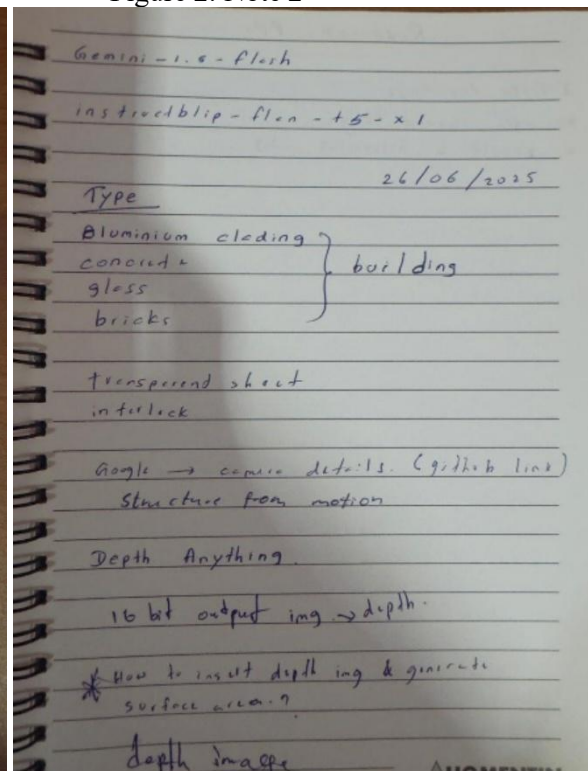 Gemini - 1.5 - flash
instructblip - flan - t5 - xl
26/06/2025
Type
Aluminium clading
concrete
glass
bricks
building
transparend sheet
interlock
Google → camera details. (github link)
Structure from motion
Depth Anything.
16 bit output img → depth.
* How to insert depth img & generate
surface area.?
depth image